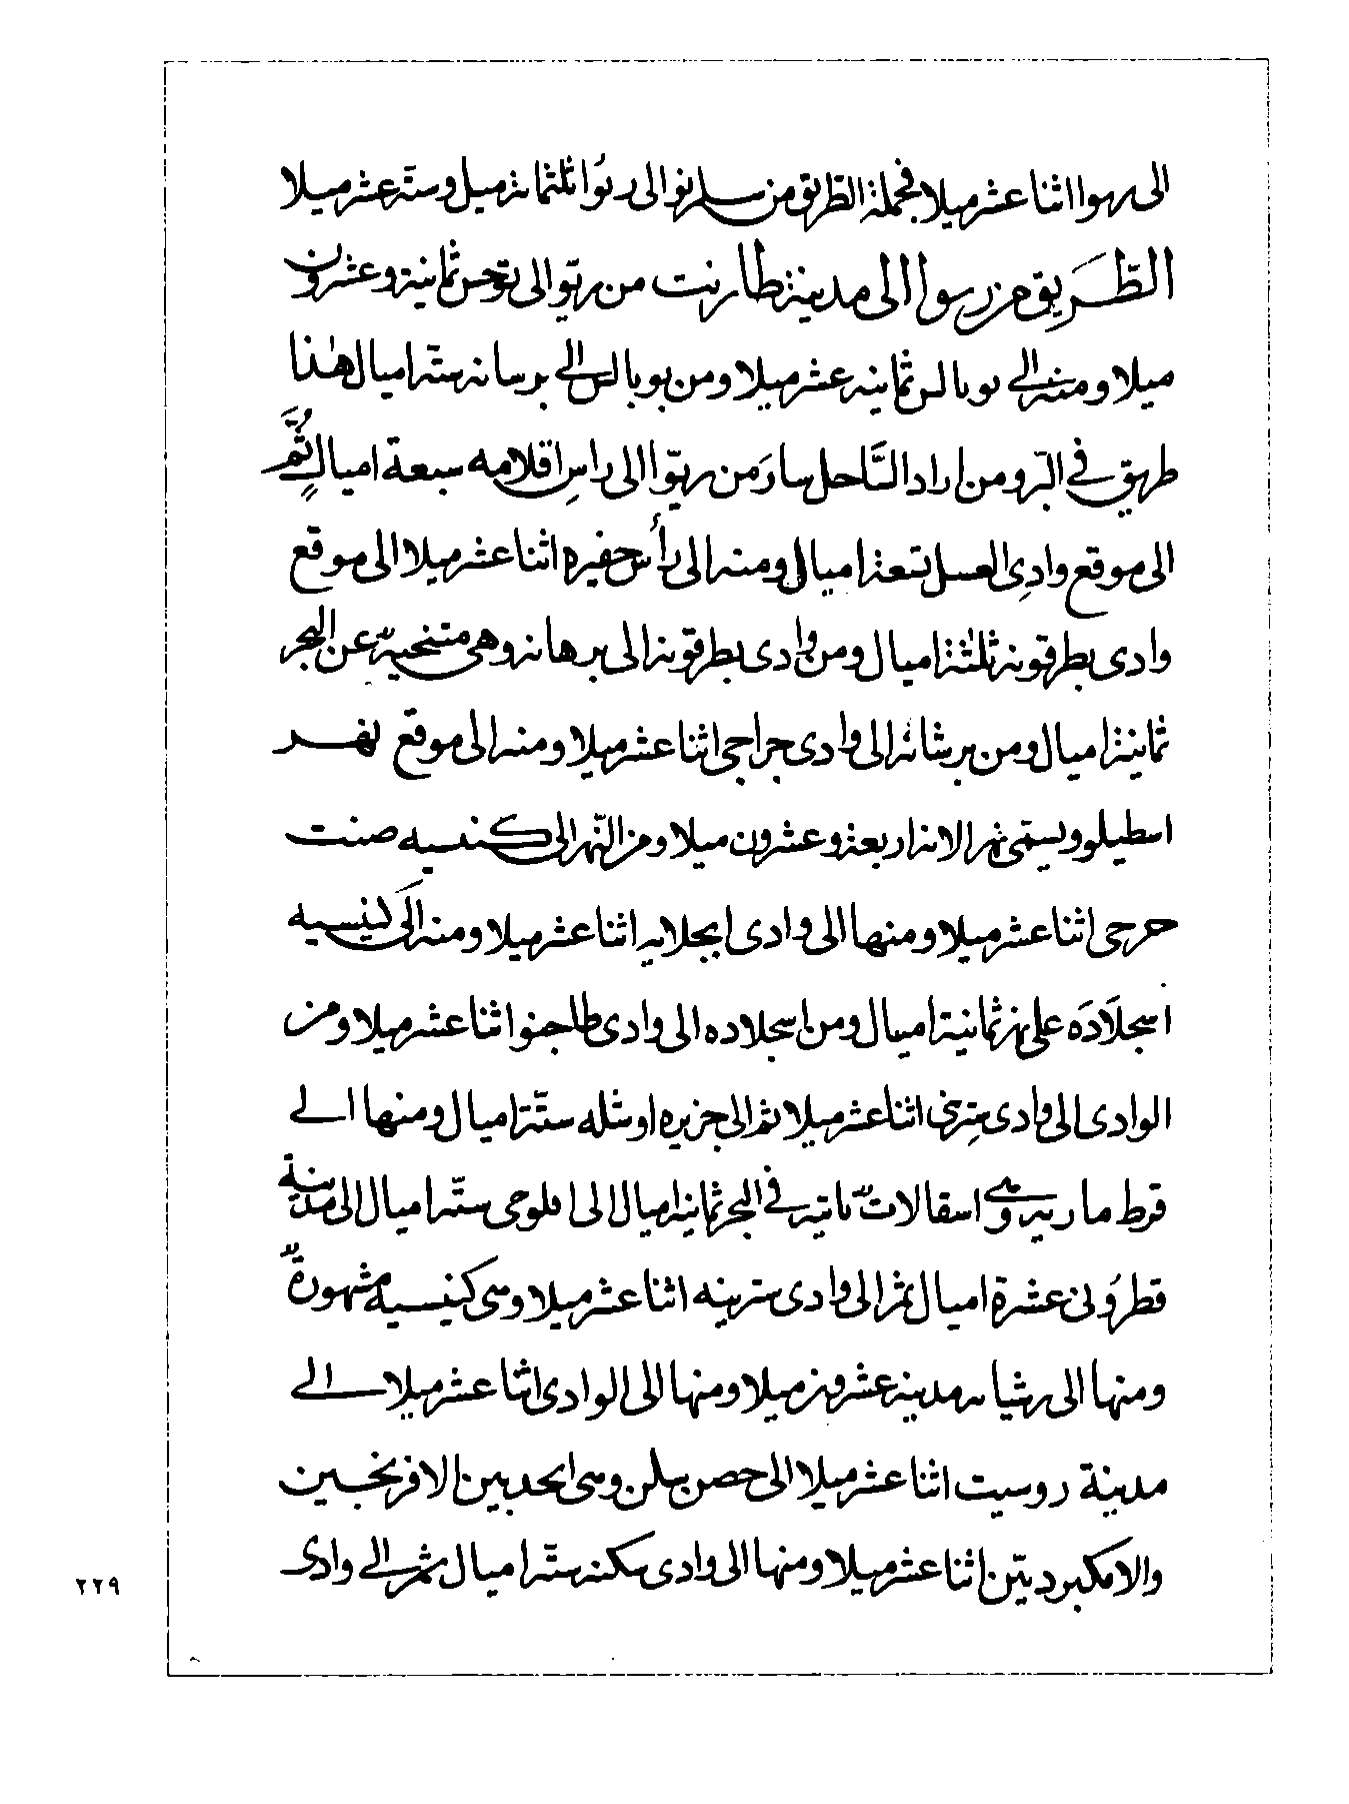 الى ريوا اثنا عشر ميلا فجملة الطريق من سلرنو الى ريوا ثلثمائة ميل وستة عشر ميلا
الطريق من ريوا الى مدينة طارنت من ريو الى بوحس ثمانية وعشرون
ميلا ومنه الى بوبالس ثمانيه عشر ميلا ومن بوبالس الى برسانه ستة اميال هذا
طريق في البر ومن اراد الساحل سار من ريوا الى راس اقلامه سبعة اميال ثم
الى موقع وادي العسل تسعة اميال ومنه الى رأس حفيره اثنا عشر ميلا الى موقع
وادى بطرقونه ثلثة اميال ومن وادى بطرقونه الى برهانه وهى متنحية عن البحر
ثمانية اميال ومن برشانه الى وادى جراجى اثنا عشر ميلا ومنه الى موقع نهر
اسطيلو ويسمى نهر الانه اربعة وعشرون ميلا ومن النهر الى كنسيه صنت
جرجى اثنا عشر ميلا ومنها الى وادى ابجلايه اثنا عشر ميلا ومنه الى كنسيه
اسجلاده على نهر ثمانية اميال ومن اسجلاده الى وادى طاجنوا ثنا عشر ميلا ومن
الوادى الى وادى مترنى اثنا عشر ميلا ثم الى جزيره اوشله ستة اميال ومنها الى
قرط ماريه وهي اسقالات ناتيه في البحر ثمانية اميال الى افلوجى ستة اميال الى مدينة
قطرونى عشرة اميال ثم الى وادى سترينه اثنا عشر ميلا وهى كنيسيه مشهورة
ومنها الى رشيانه مدينه عشرون ميلا ومنها الى الوادى اثنا عشر ميلا الى
مدينة روسيت اثنا عشر ميلا الى حصن بيلن وهى الحد بين الافرنجيين
والانكبرديين اثنا عشر ميلا ومنها الى وادى سكنه ستة اميال ثم الى وادى
٢٢٩